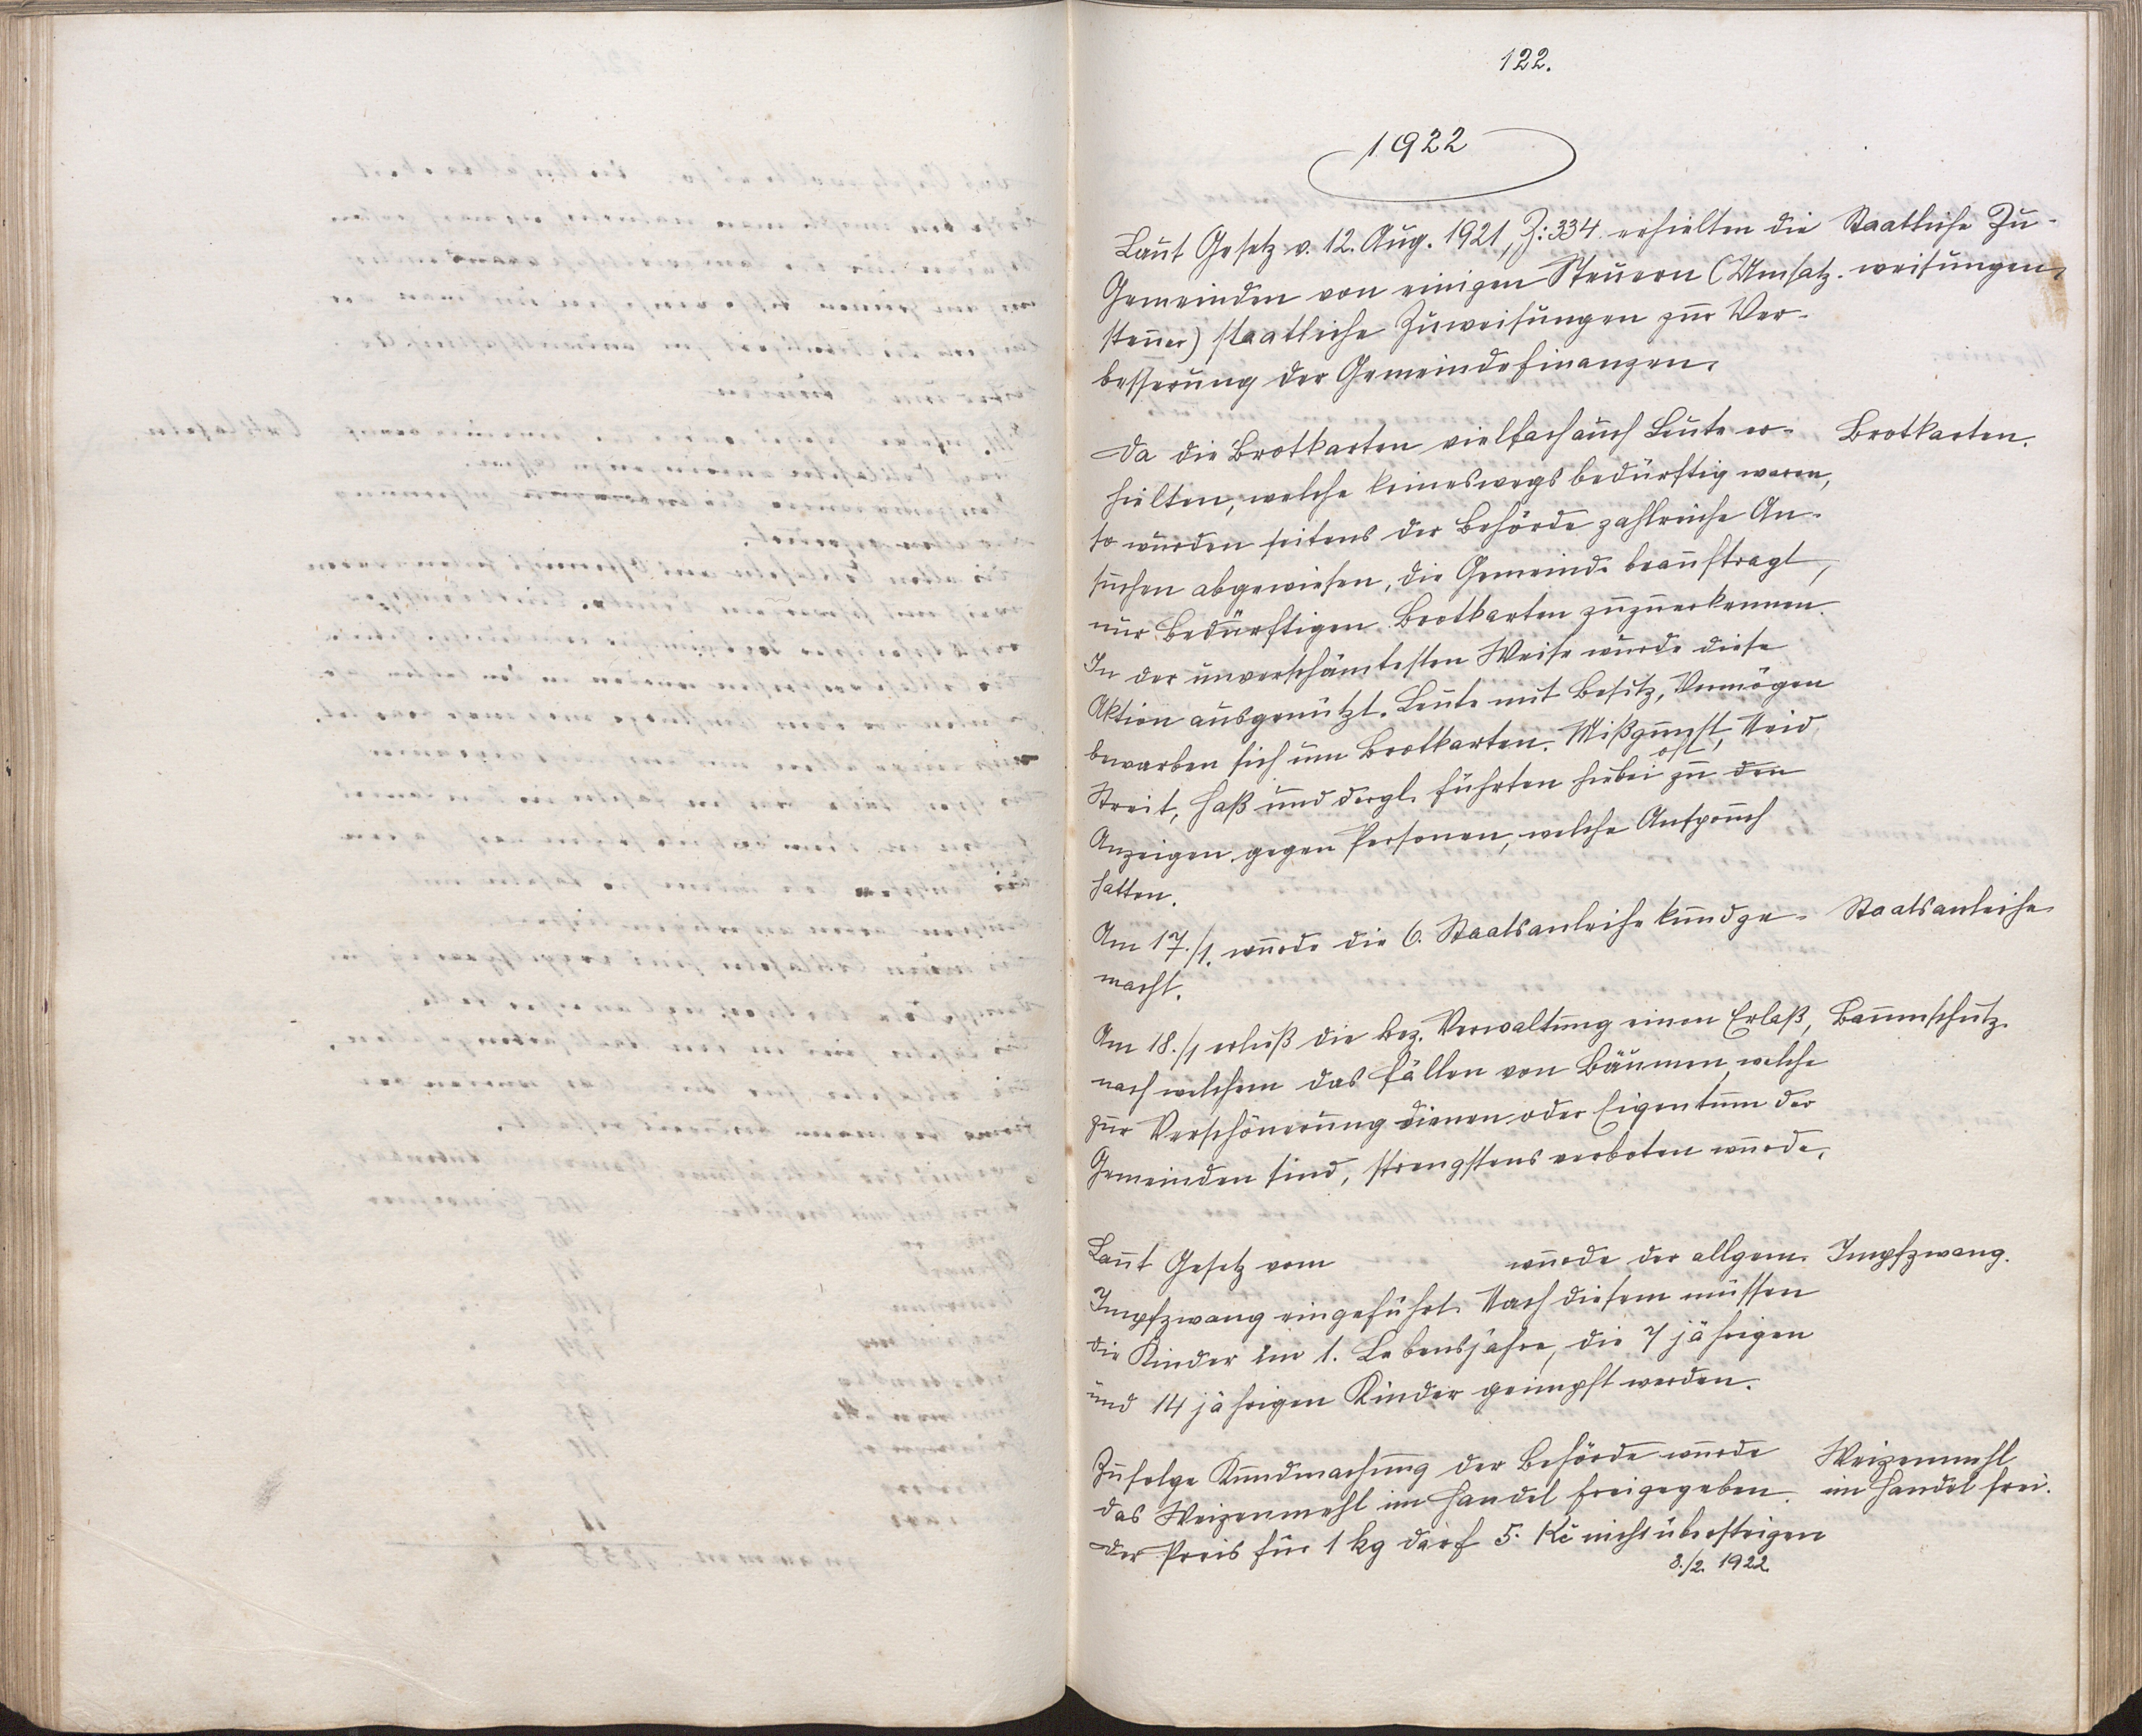 122.
1922
Laut Gesetz v. 12. Aug. 1921, Z: 334 erhielten die
Gemeinden von einigen Steuern (Umsatz-
steuer) staatliche Zuweisungen zur Ver-
besserung der Gemeindefinanzen.
Staatliche Zu-
weisungen
Da die Brotkarten vielfach auch Leute er-
hielten, welche keineswegs bedürftig waren,
so wurden seitens der Behörde zahlreiche An-
suchen abgewiesen, die Gemeinde beauftragt,
nur Bedürftigen Brotkarten zuzuerkennen.
In der unverschämtesten Weise wurde diese
Aktion ausgenützt. Leute mit Besitz, Vermögen
bewarben sich um Brotkarten. Mißgunst, Neid
Streit, Haß und dergl. führten hiebei oft zu den
Anzeigen gegen Personen, welche Anspruch
hatten.
Brotkarten.
Am 17./1. wurde die 6. Staatsanleihe kundge-
macht.
Staatsanleihe
Am 18./1 erließ die bez. Verwaltung einen Erlaß,
nach welchem das Fällen von Bäumen, welche
zur Verschönerung dienen oder Eigentum der
Gemeinden sind, strengstens verboten wurde.
Baumschutz.
Laut Gesetz vom wurde der allgem.
Impfzwang eingeführt. Nach diesem müssen
die Kinder im 1. Lebensjahre, die 7 jährigen
und 14 jährigen Kinder geimpft werden.
Impfzwang.
Zufolge Kundmachung der Behörde wurde
das Weizenmehl im Handel freigegeben.
Der Preis für 1 kg darf 5. Kč nicht übersteigen
8./2. 1922
Weizenmehl
im Handel frei.